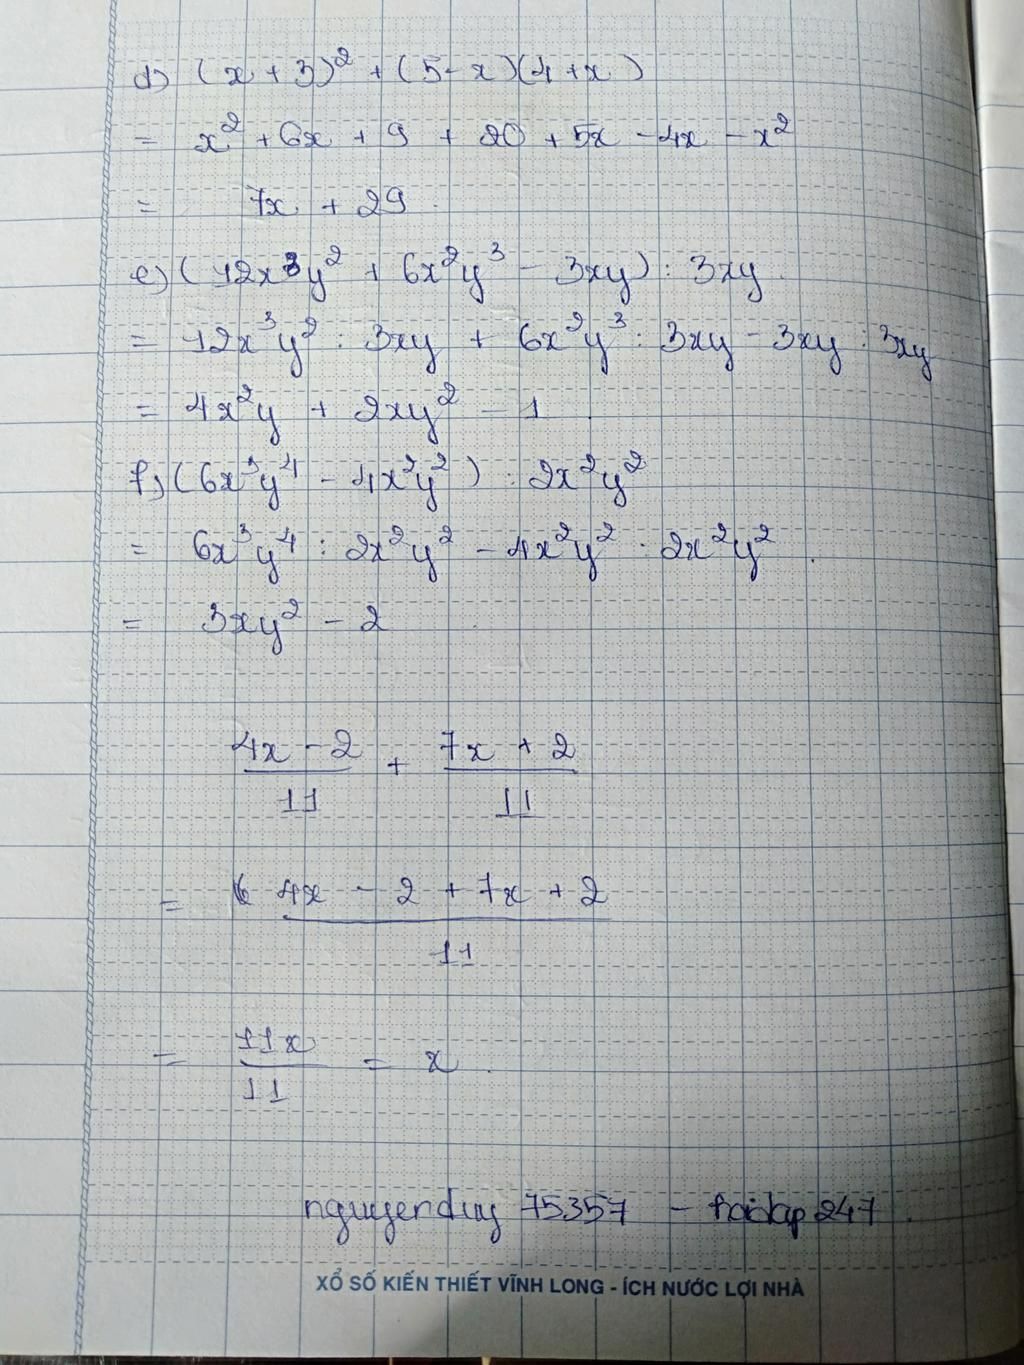 d) (x + 3)² + (5 - x)(4 + x)
= x² + 6x + 9 + 20 + 5x - 4x - x²
= 7x + 29.
e) (12x³y² + 6x²y³ - 3xy) : 3xy.
= 12x³y² : 3xy + 6x²y³ : 3xy - 3xy : 3xy
= 4x²y + 2xy² - 1.
f) (6x³y⁴ - 4x²y²) : 2x²y²
= 6x³y⁴ : 2x²y² - 4x²y² : 2x²y².
= 3xy² - 2
4x - 2 + 7x + 2
11 11
= 4x - 2 + 7x + 2
11
= 11x = x.
11
nguyenduy 75357 - hoidap247.
XỔ SỐ KIẾN THIẾT VĨNH LONG - ÍCH NƯỚC LỢI NHÀ